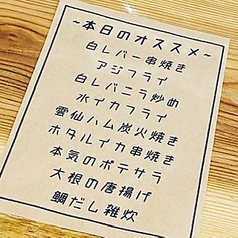 ~本日のオススメ~
白レバー串焼き
アジフライ
白レバニラ炒め
水イカフライ
雲仙ハム炭火焼き
ホタルイカ串焼き
本気のポテサラ
大根の唐揚げ
鯛だし雑炊